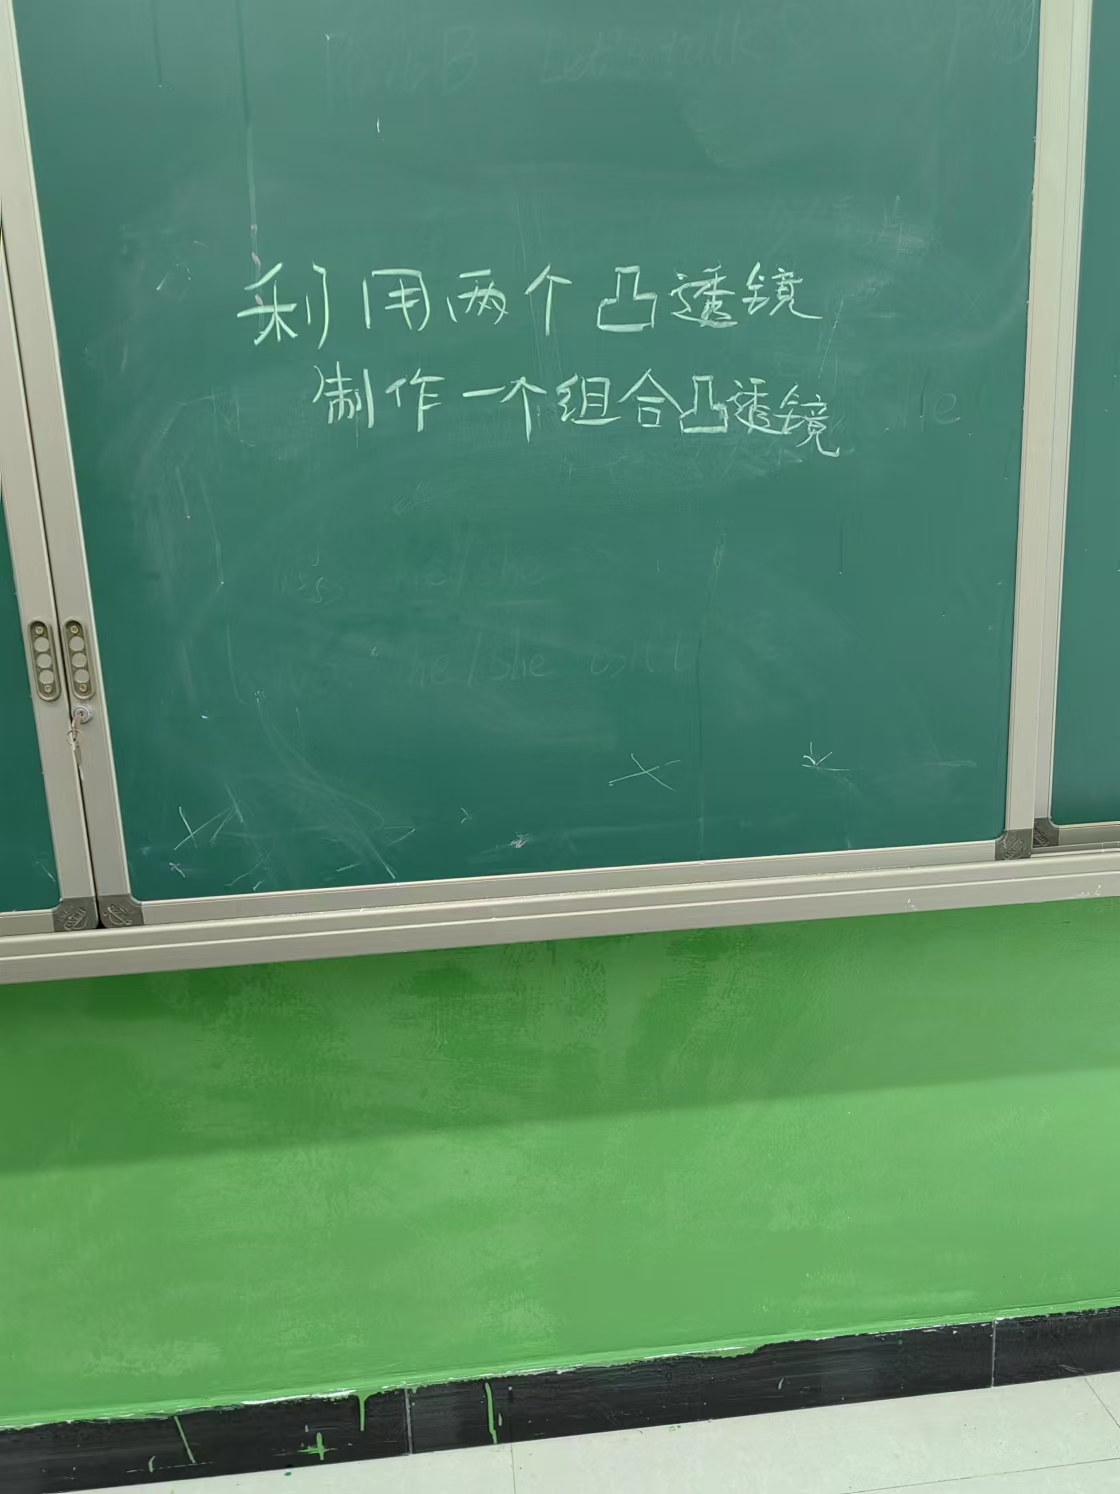 利用两个凸透镜
制作一个组合凸透镜